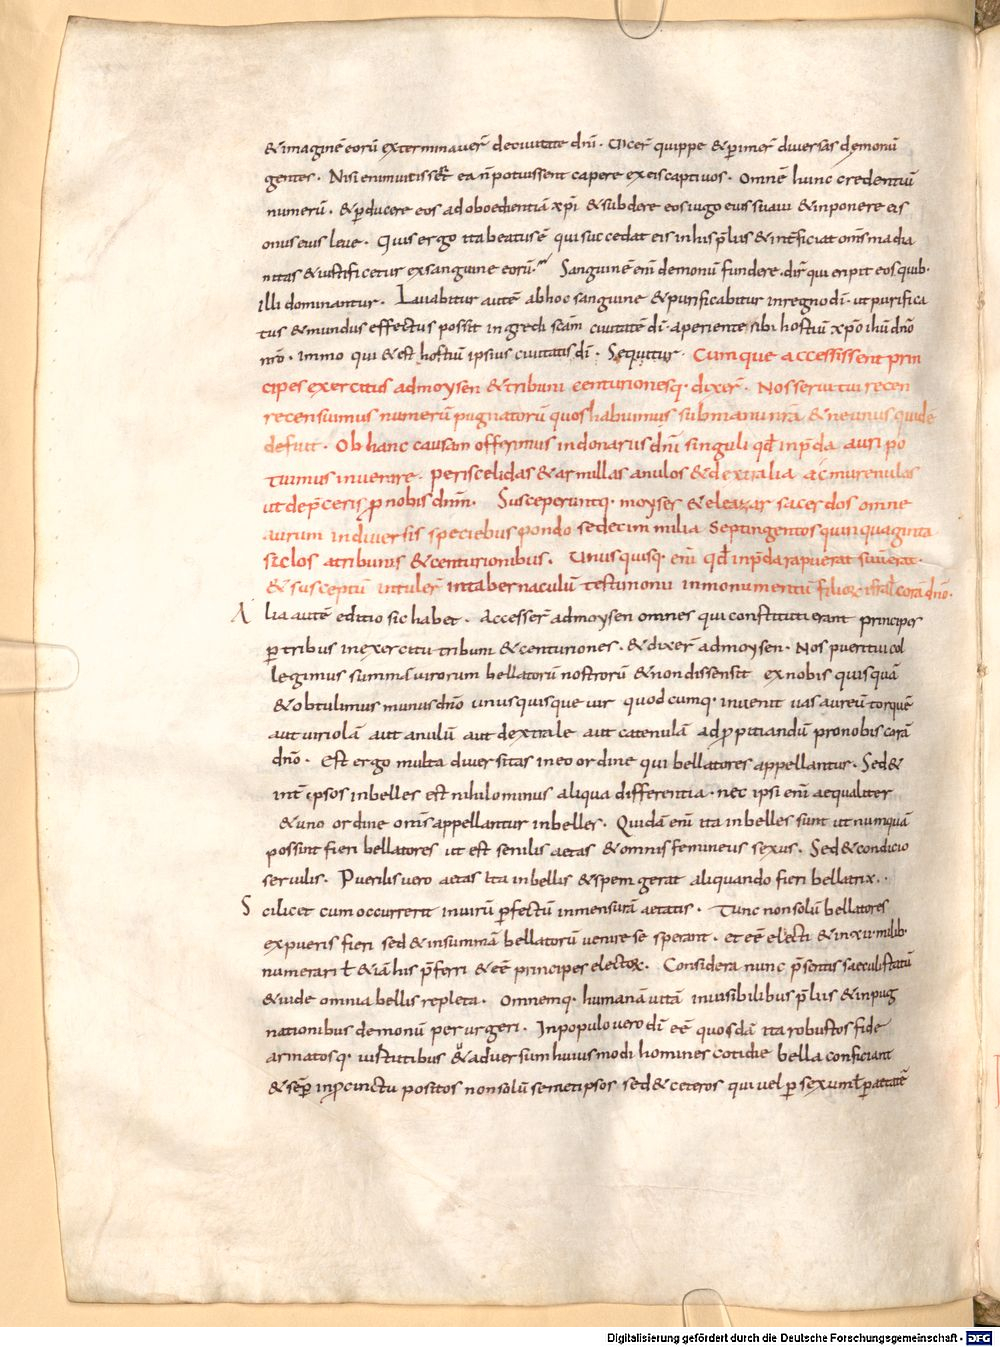 & imaginē eorū exterminauer̄ deciuitate dn̄i. Vicer̄ quippe & ꝑimer̄ diuersas demonū
gentes. Nisi enim uitis &ea n̄ potuissent capere exeis captiuos. Omnē hunc credentiū
numerū. & ꝑducere eos ad oboedientiā xp̄i & subdere eos iugo eius suaui & inponere eis
onus eius leue. Quis ergo ita beatus ē qui succedat eis in his p̄liis & int̄ficiat om̄s madia
nitas & iustificetur exsanguine eorū. Sanguinē eni̅ demonū fundere dir̄ qui eripit eos quib;
illi dominantur. Lauabitur autē abhoc sanguine & purificabitur inregno di̅. ut purifica
tus & mundus effectus possit ingredi sc̄am ciuitatē di̅. aperiente sibi hostiū xp̄o ihū dn̄o
nr̄o. immo qui & est hostiū ipsius ciuitatis di̅. Sequitur. Cumque accessissent prin
cipes exercitus admoysen & tribuni centurionesq; dixer̄. Nos serui tui recen
recensuimus numerū pugnatorū quos habuimus submanu nr̄a & ne unus quidē
defuit. Ob hanc causam offerimus indonariis dn̄i singuli qd̄ inp̄da auri po
tuimus inuenire. periscelidas & armillas anulos & dextralia ac murenulas
ut dep̄ceris ꝓ nobis dn̄m. Susceperuntq; moyses & eleazar sacerdos omne
aurum indiuersis speciebus pondo sedecim milia septingentos quinquaginta
siclos atribunis & centurionibus. Unusquisq; eni̅ qd̄ inp̄da rapuerat suū erat.
& susceptū intuler̄ intabernaculū testimonii inmonumentū filioꝝ isrl̄ corā dn̄o.
Alia autē editio sic habet. Accesser̄ admoysen omnes qui constituti erant principes
ꝑ tribus inexercitu tribuni & centuriones. & dixer̄ admoysen. Nos pueri tui col
legimus summā uirorum bellatorū nostrorū & non dissensit exnobis quisquā
& obtulimus munus dn̄o unusquisque uir quodcumq; inuenit uas aureū torquē
aut uiriolā aut anulū aut dextrale aut catenulā ad ꝓpitiandū pro nobis corā
dn̄o. Est ergo multa diuersitas in eo ordine qui bellatores appellantur. Sed &
int̄ ipsos inbelles est nihilominus aliqua differentia. nec ipsi eni̅ aequaliter
& uno ordine om̄s appellantur inbelles. Quidā eni̅ ita inbelles sunt ut numquā
possint fieri bellatores ut est senilis aetas & omnis femineus sexus. Sed & condicio
seruilis. Puerilis uero aetas ita inbellis & spem gerat aliquando fieri bellatrix..
Scilicet cum occurrerit in uirū ꝑfectū inmensurā aetatis. Tunc non solū bellatores
expueris fieri sed & insummā bellatorū uenire se sperant. et eē electi & in xii. milib;
numerari ł & iā his p̄ferri & eē principes electoꝝ. Considera nunc p̄sentis saeculi statū
& uide omnia bellis repleta. Omnemq; humanā uitā inuisibilibus p̄liis & inpug
nationibus demonū perurgeri. In populo uero di̅ eē quosdā ita robustos fide
armatosq; uirtutibus & aduersum huiusmodi homines cotidie bella conficiant
& sēꝑ inꝓcinctu positos non solū semetipsos sed & ceteros qui uel ꝑ sexum ł ꝑ aetatē
Digitalisierung gefördert durch die Deutsche Forschungsgemeinschaft - DFG